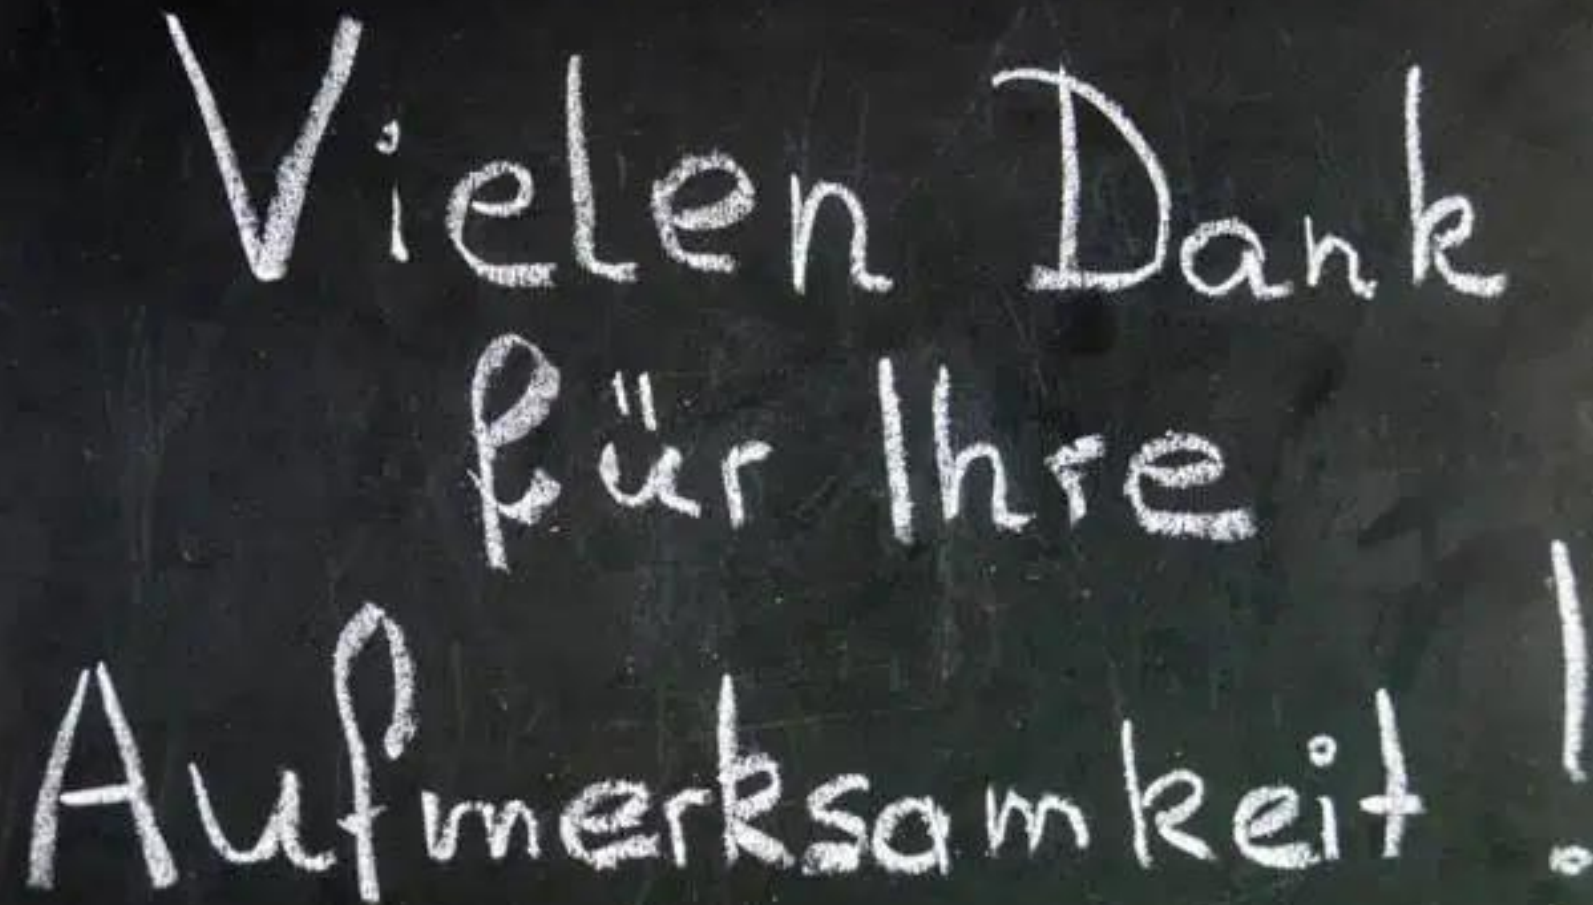 Vielen Dank
für Ihre
Aufmerksamkeit!